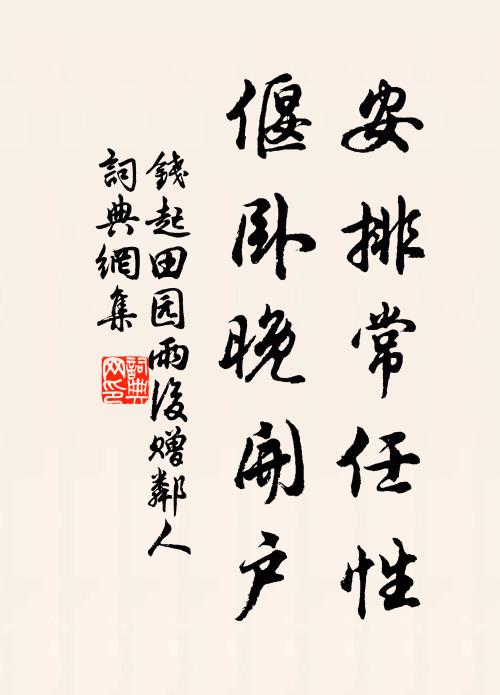 安排常任性
偃卧晚開户
錢起田园雨後贈鄰人
詞典網集
詞典網印